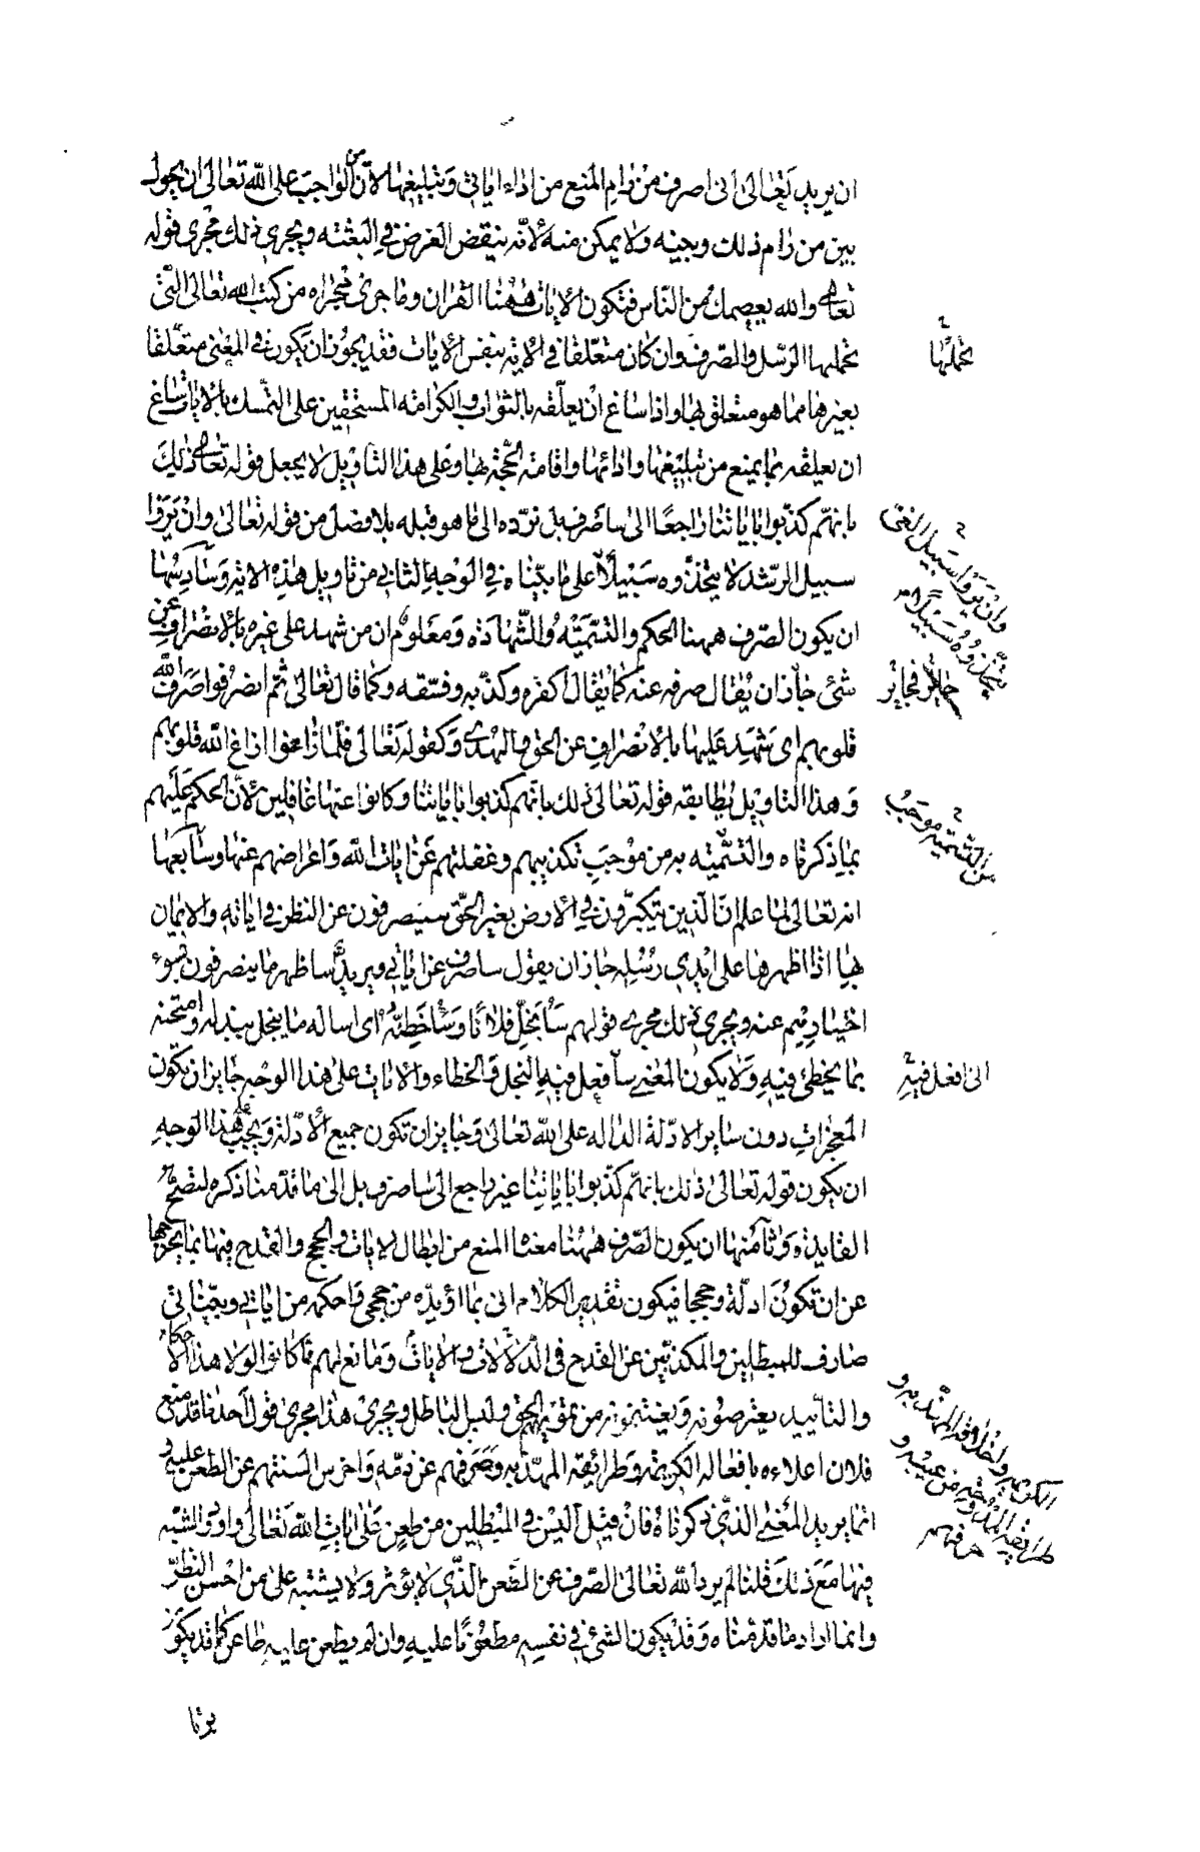 ان يريد تعالى انى اصرف من رام المنع من اداء اياتى وتبليغها لان من الواجب على الله تعالى ان يحول
بين من رام ذلك وبينه ولا يمكن منه لانه ينقض الغرض فى البعثة ويجرى ذلك مجرى قوله
تعالى والله يعصمك من الناس فتكون الايات ههنا القران وما جرى مجراه من كتب الله تعالى التى
تحملها الرسل والصرف وان كان متعلقا فى الاية بنفس الايات فقد يجوز ان يكون فى المعنى متعلقا
بغيرها مما هو متعلق بها واذا ساغ ان يعلقه بالثواب والكرامة المستحقين على التمسك بالايات ساغ
ان يعلقه بما يمنع من تبليغها وادائها واقامة الحجة بها وعلى هذا التاويل لا يجعل قوله تعالى ذلك
بانهم كذبوا باياتنا راجعا الى ساصرف بل نرده الى ما هو قبله بلا فصل من قوله تعالى وان يروا
سبيل الرشد لا يتخذوه سبيلا على ما بيناه فى الوجه الثانى من تاويل هذه الاية وسادسها
ان يكون الصرف ههنا الحكم والتسمية والشهادة ومعلوم ان من شهد على غيره بالانصراف عن
شئ جاز ان يقال صرفه عنه كما يقال اكفره وكذبه وفسقه وكما قال تعالى ثم انصرفوا صرف الله
قلوبهم اى شهد عليها بالانصراف عن الحق والهدى وكقوله تعالى فلما زاغوا ازاغ الله قلوبهم
وهذا التاويل يطابقه قوله تعالى ذلك بانهم كذبوا باياتنا وكانوا عنها غافلين لان الحكم عليهم
بما ذكرناه والتسمية به من موجب تكذيبهم وغفلتهم عن ايات الله واعراضهم عنها وسابعها
انه تعالى لما علم ان الذين يتكبرون فى الارض بغير الحق سيصرفون عن النظر فى اياته والايمان
بها اذا اظهرها على ايدى رسله جاز ان يقول ساصرف عن اياتى ويريد ساظهر ما ينصرفون بسوء
اختيارهم عنه ويجرى ذلك مجرى قولهم سابخل فلانا وساخطئه اى اساله ما يبخل ببذله وامتحنه
بما يخطئ فيه ولا يكون المعنى سافعل فيه البخل والخطاء والايات على هذا الوجه جايز ان تكون
المعجزات دون ساير الادلة الدالة على الله تعالى وجايز ان تكون جميع الادلة ويجب على هذا الوجه
ان يكون قوله تعالى ذلك بانهم كذبوا باياتنا غير راجع الى ساصرف بل الى ما قدمنا ذكره لتصح
الفايدة وثامنها ان يكون الصرف ههنا معناه المنع من ابطال الايات والحجج والقدح فيها بما يخرجها
عن ان تكون ادلة وحججا فيكون تقدير الكلام انى بما اؤيده من حججى واحكمه من اياتى وبيناتى
صارف للمبطلين والمكذبين عن القدح فى الدلالات والايات ومانع لهم مما كانوا لولا هذا الاحكام
والتأييد يعترضونه ويغتنمونه من تمويه الحق ولبس الباطل ويجرى هذا مجرى قول احدنا قد منع
فلان اعداءه بافعاله الكريمة وطرائقه المهذبة وصرفهم عن ذمه واخرس السنتهم عن الطعن عليه و
انما يريد المعنى الذى ذكرناه فان قيل اليس فى المبطلين من طعن على ايات الله تعالى واورد الشبه
فيها مع ذلك قلنا لم يرد الله تعالى الصرف عن الطعن الذى لا يؤثر ولا يشتبه على من احسن النظر
وانما اراد ما قدمناه وقد يكون الشئ فى نفسه مطعونا عليه وان لم يطعن عليه طاعن كما قد يكون
بريا
تحملتها
وان يروا سبيل الغى
يتخذوه سبيلا
جايز فجايز
من التسمية موجب
اى افعل فيه